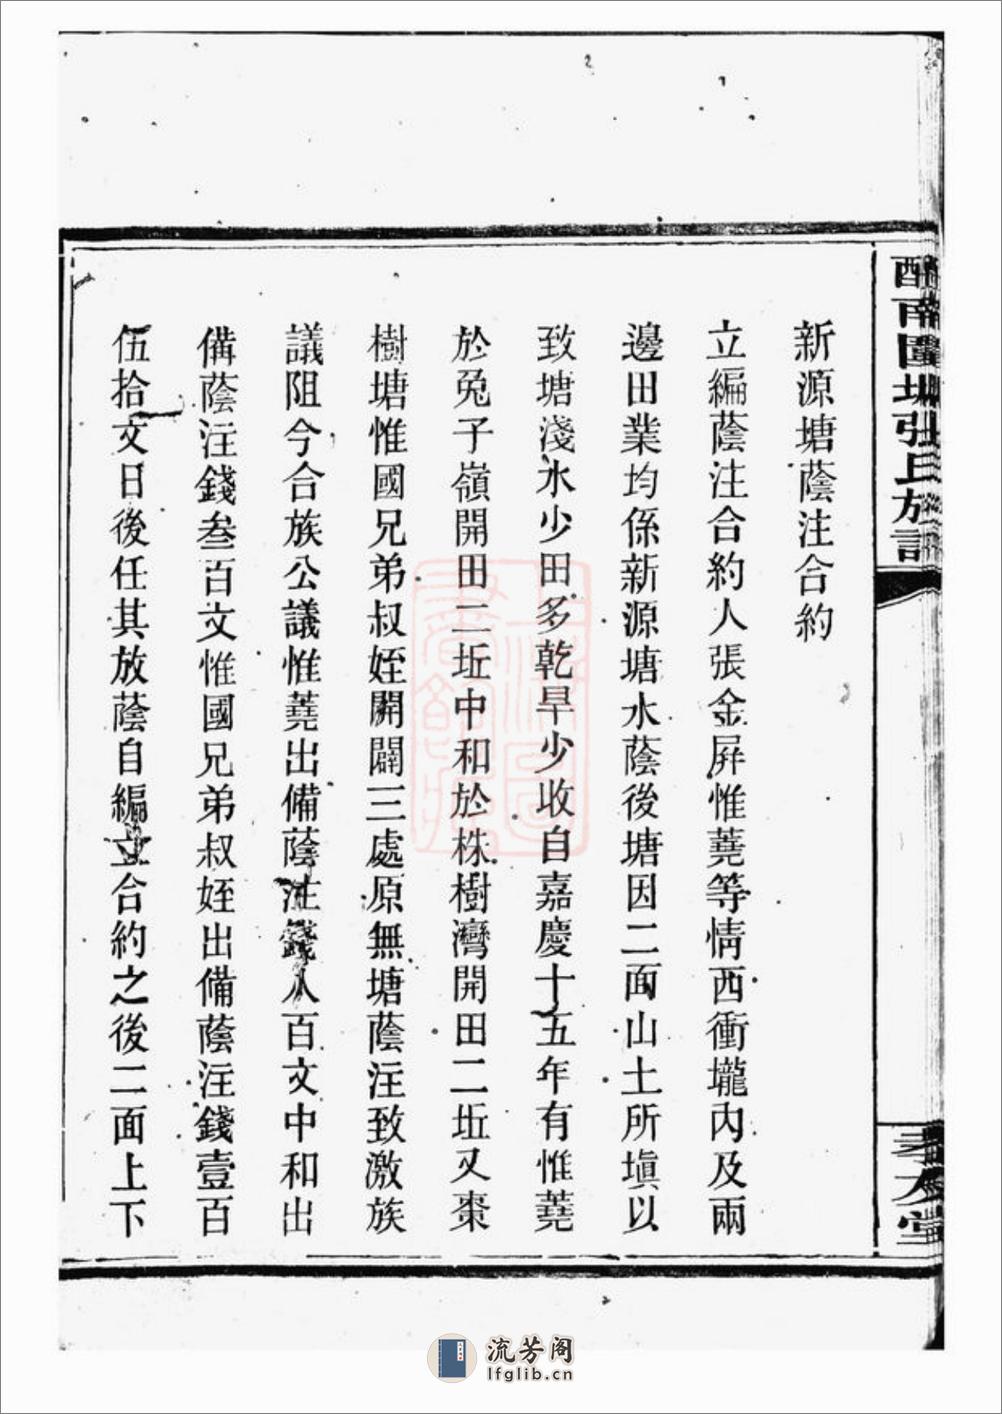 新源塘蔭注合約
立編蔭注合約人張金屏惟蕘等情西衝壠內及兩
邊田業均係新源塘水蔭後塘因二面山土所塡以
致塘淺水少田多乾旱少收自嘉慶十五年有惟蕘
於兔子嶺開田二坵中和於株樹灣開田二坵又棗
樹塘惟國兄弟叔姪開闢三處原無塘蔭注致激族
議阻今合族公議惟蕘出備蔭注錢八百文中和出
備蔭注錢叁百文惟國兄弟叔姪出備蔭注錢壹百
伍拾文日後任其放蔭自編立合約之後二面上下
南圍 張氏族
堂
流芳阁
lfglib.cn